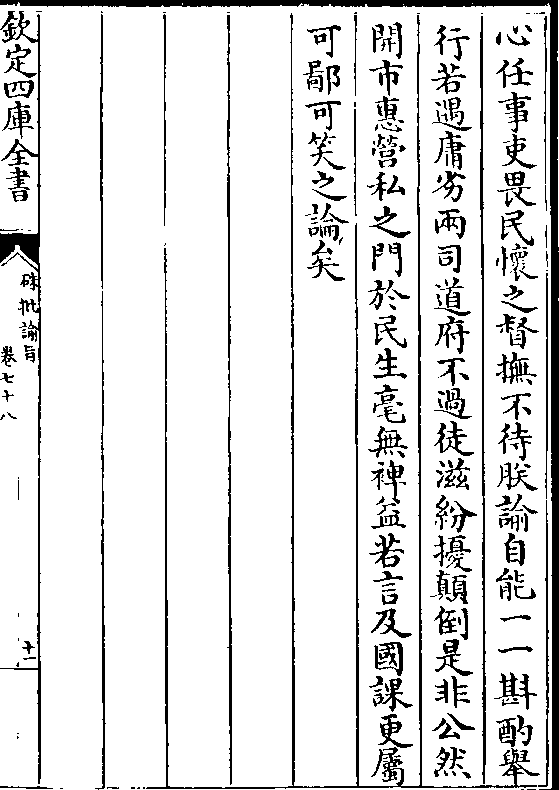 心任事吏畏民懷之督撫不待朕諭自能一一斟酌舉
行若遇庸劣兩司道府不過徒滋紛擾顛倒是非公然
開市惠營私之門於民生毫無裨益若言及國課更屬
可鄙可笑之論矣
欽定四庫全書
硃批諭旨
卷七十八
十一